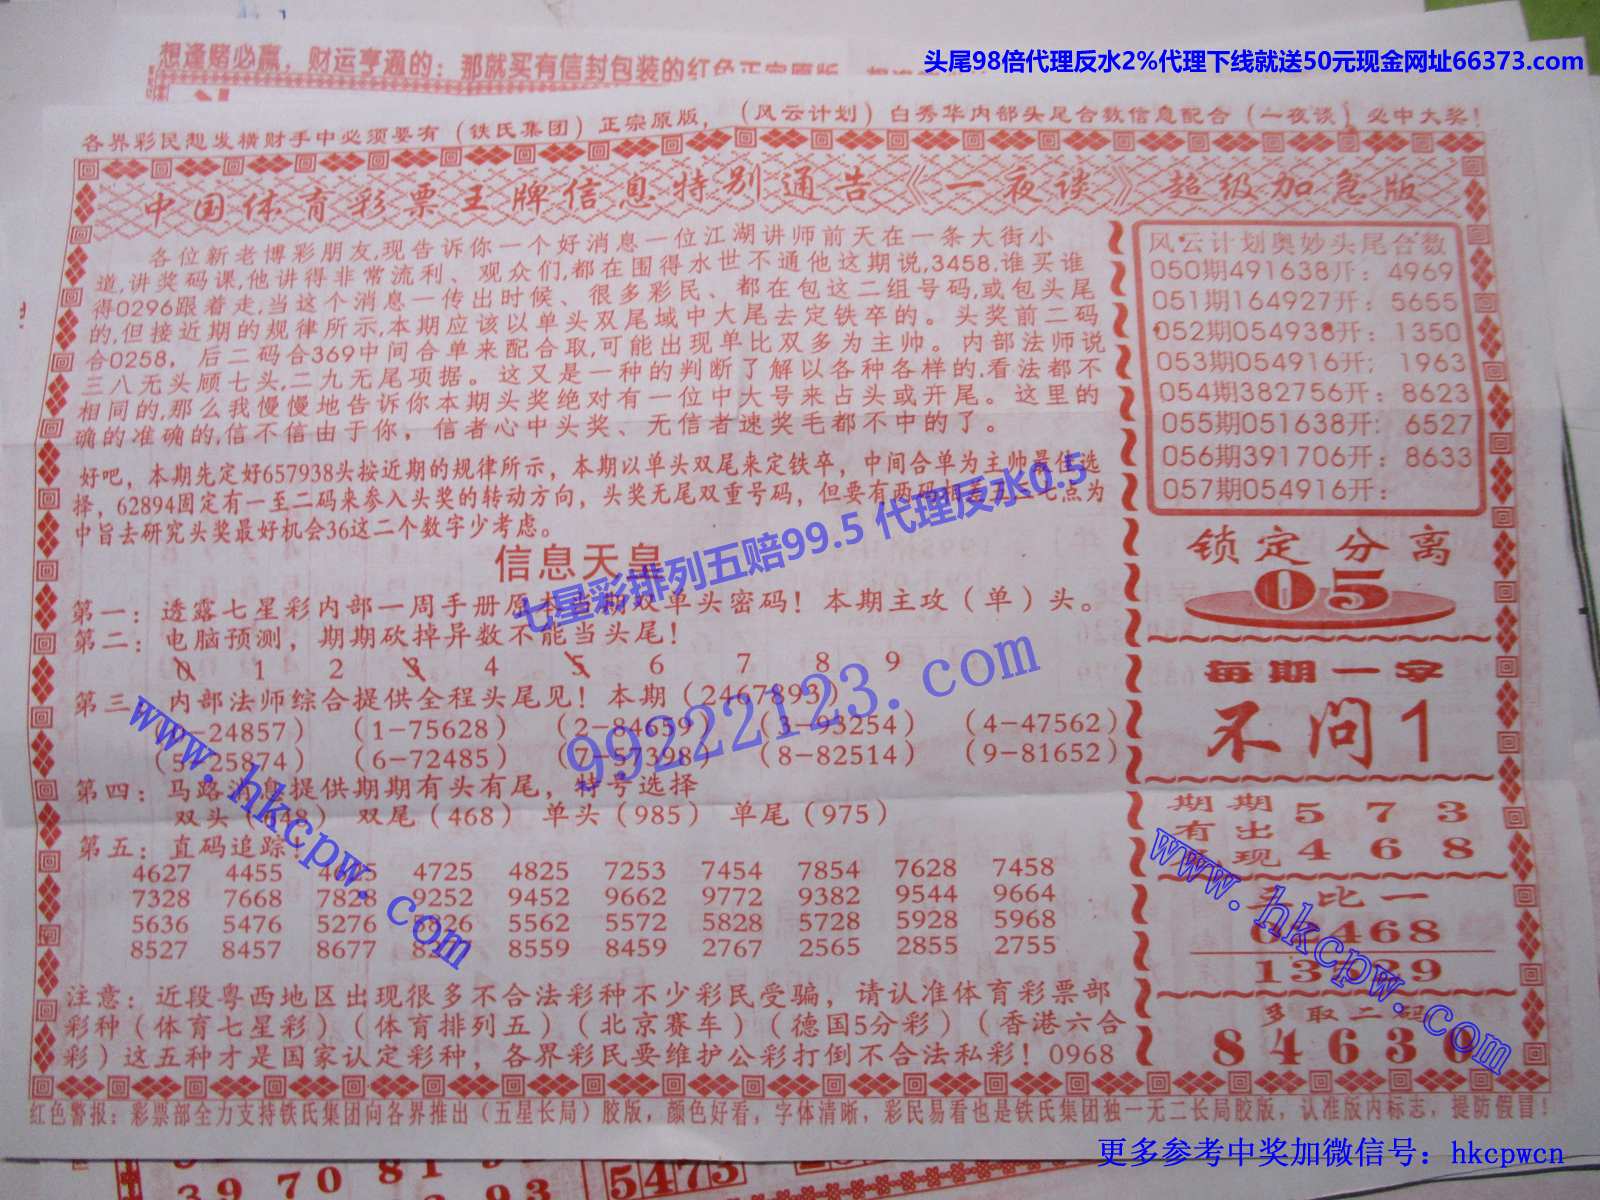 头尾98倍代理反水2%代理下线就送50元现金网址66373.com
想逢赌必赢，财运亨通的：那就买有信封包装的红色正宗原版
各界彩民想发横财手中必须要有（铁氏集团）正宗原版，（风云计划）白秀华内部头尾合数信息配合（一夜谈）必中大奖！
中国体育彩票王牌信息特别通告《一夜谈》超级加急版
各位新老博彩朋友,现告诉你一个好消息一位江湖讲师前天在一条大街小
道,讲奖码课,他讲得非常流利、观众们,都在围得水世不通他这期说,3458,谁买谁
得0296跟着走,当这个消息一传出时候、很多彩民、都在包这二组号码,或包头尾
的,但接近期的规律所示,本期应该以单头双尾域中大尾去定铁卒的。头奖前二码
合0258，后二码合369中间合单来配合取,可能出现单比双多为主帅。内部法师说
三八无头顾七头,二九无尾项据。这又是一种的判断了解以各种各样的,看法都不
相同的,那么我慢慢地告诉你本期头奖绝对有一位中大号来占头或开尾。这里的
确的准确的,信不信由于你，信者心中头奖、无信者速奖毛都不中的了。
好吧，本期先定好657938头按近期的规律所示，本期以单头双尾来定铁卒，中间合单为主帅最佳选
择，62894固定有一至二码来参入头奖的转动方向，头奖无尾双重号码，但要有两码相差五六七点为
中旨去研究头奖最好机会36这二个数字少考虑。
信息天皇
七星彩排列五赔99.5 代理反水0.5
第一：透露七星彩内部一周手册原本当期双单头密码！本期主攻（单）头。
第二：电脑预测，期期砍掉异数不能当头尾！
0 1 2 3 4 5 6 7 8 9
第三：内部法师综合提供全程头尾见！本期（2467893）
99222123.com
（0-24857）（1-75628）（2-84659）（3-93254）（4-47562）
（5-25874）（6-72485）（7-57398）（8-82514）（9-81652）
第四：马路消息提供期期有头有尾，特号选择
双头（648）双尾（468）单头（985）单尾（975）
第五：直码追踪！
4627 4455 4725 4825 7253 7454 7854 7628 7458
7328 7668 7828 9252 9452 9662 9772 9382 9544 9664
5636 5476 5276 5562 5572 5828 5728 5928 5968
8527 8457 8677 8559 8459 2767 2565 2855 2755
www.hkcpw.com
注意：近段粤西地区出现很多不合法彩种不少彩民受骗，请认准体育彩票部
彩种（体育七星彩）（体育排列五）（北京赛车）（德国5分彩）（香港六合
彩）这五种才是国家认定彩种，各界彩民要维护公彩打倒不合法私彩！0968
风云计划奥妙头尾合数
050期491638开：4969
051期164927开：5655
052期054938开：1350
053期054916开：1963
054期382756开：8623
055期051638开：6527
056期391706开：8633
057期054916开：
锁定分离
05
每期一字
不问1
期期 5 7 3
有出
现 4 6 8
比一
02468
13529
多取二码
84630
www.hkcpw.com
红色警报：彩票部全力支持铁氏集团向各界推出（五星长局）胶版，颜色好看，字体清晰，彩民易看也是铁氏集团独一无二长局胶版，认准版内标志，提防假冒！
更多参考中奖加微信号：hkcpwcn
39 70 81
93
5473